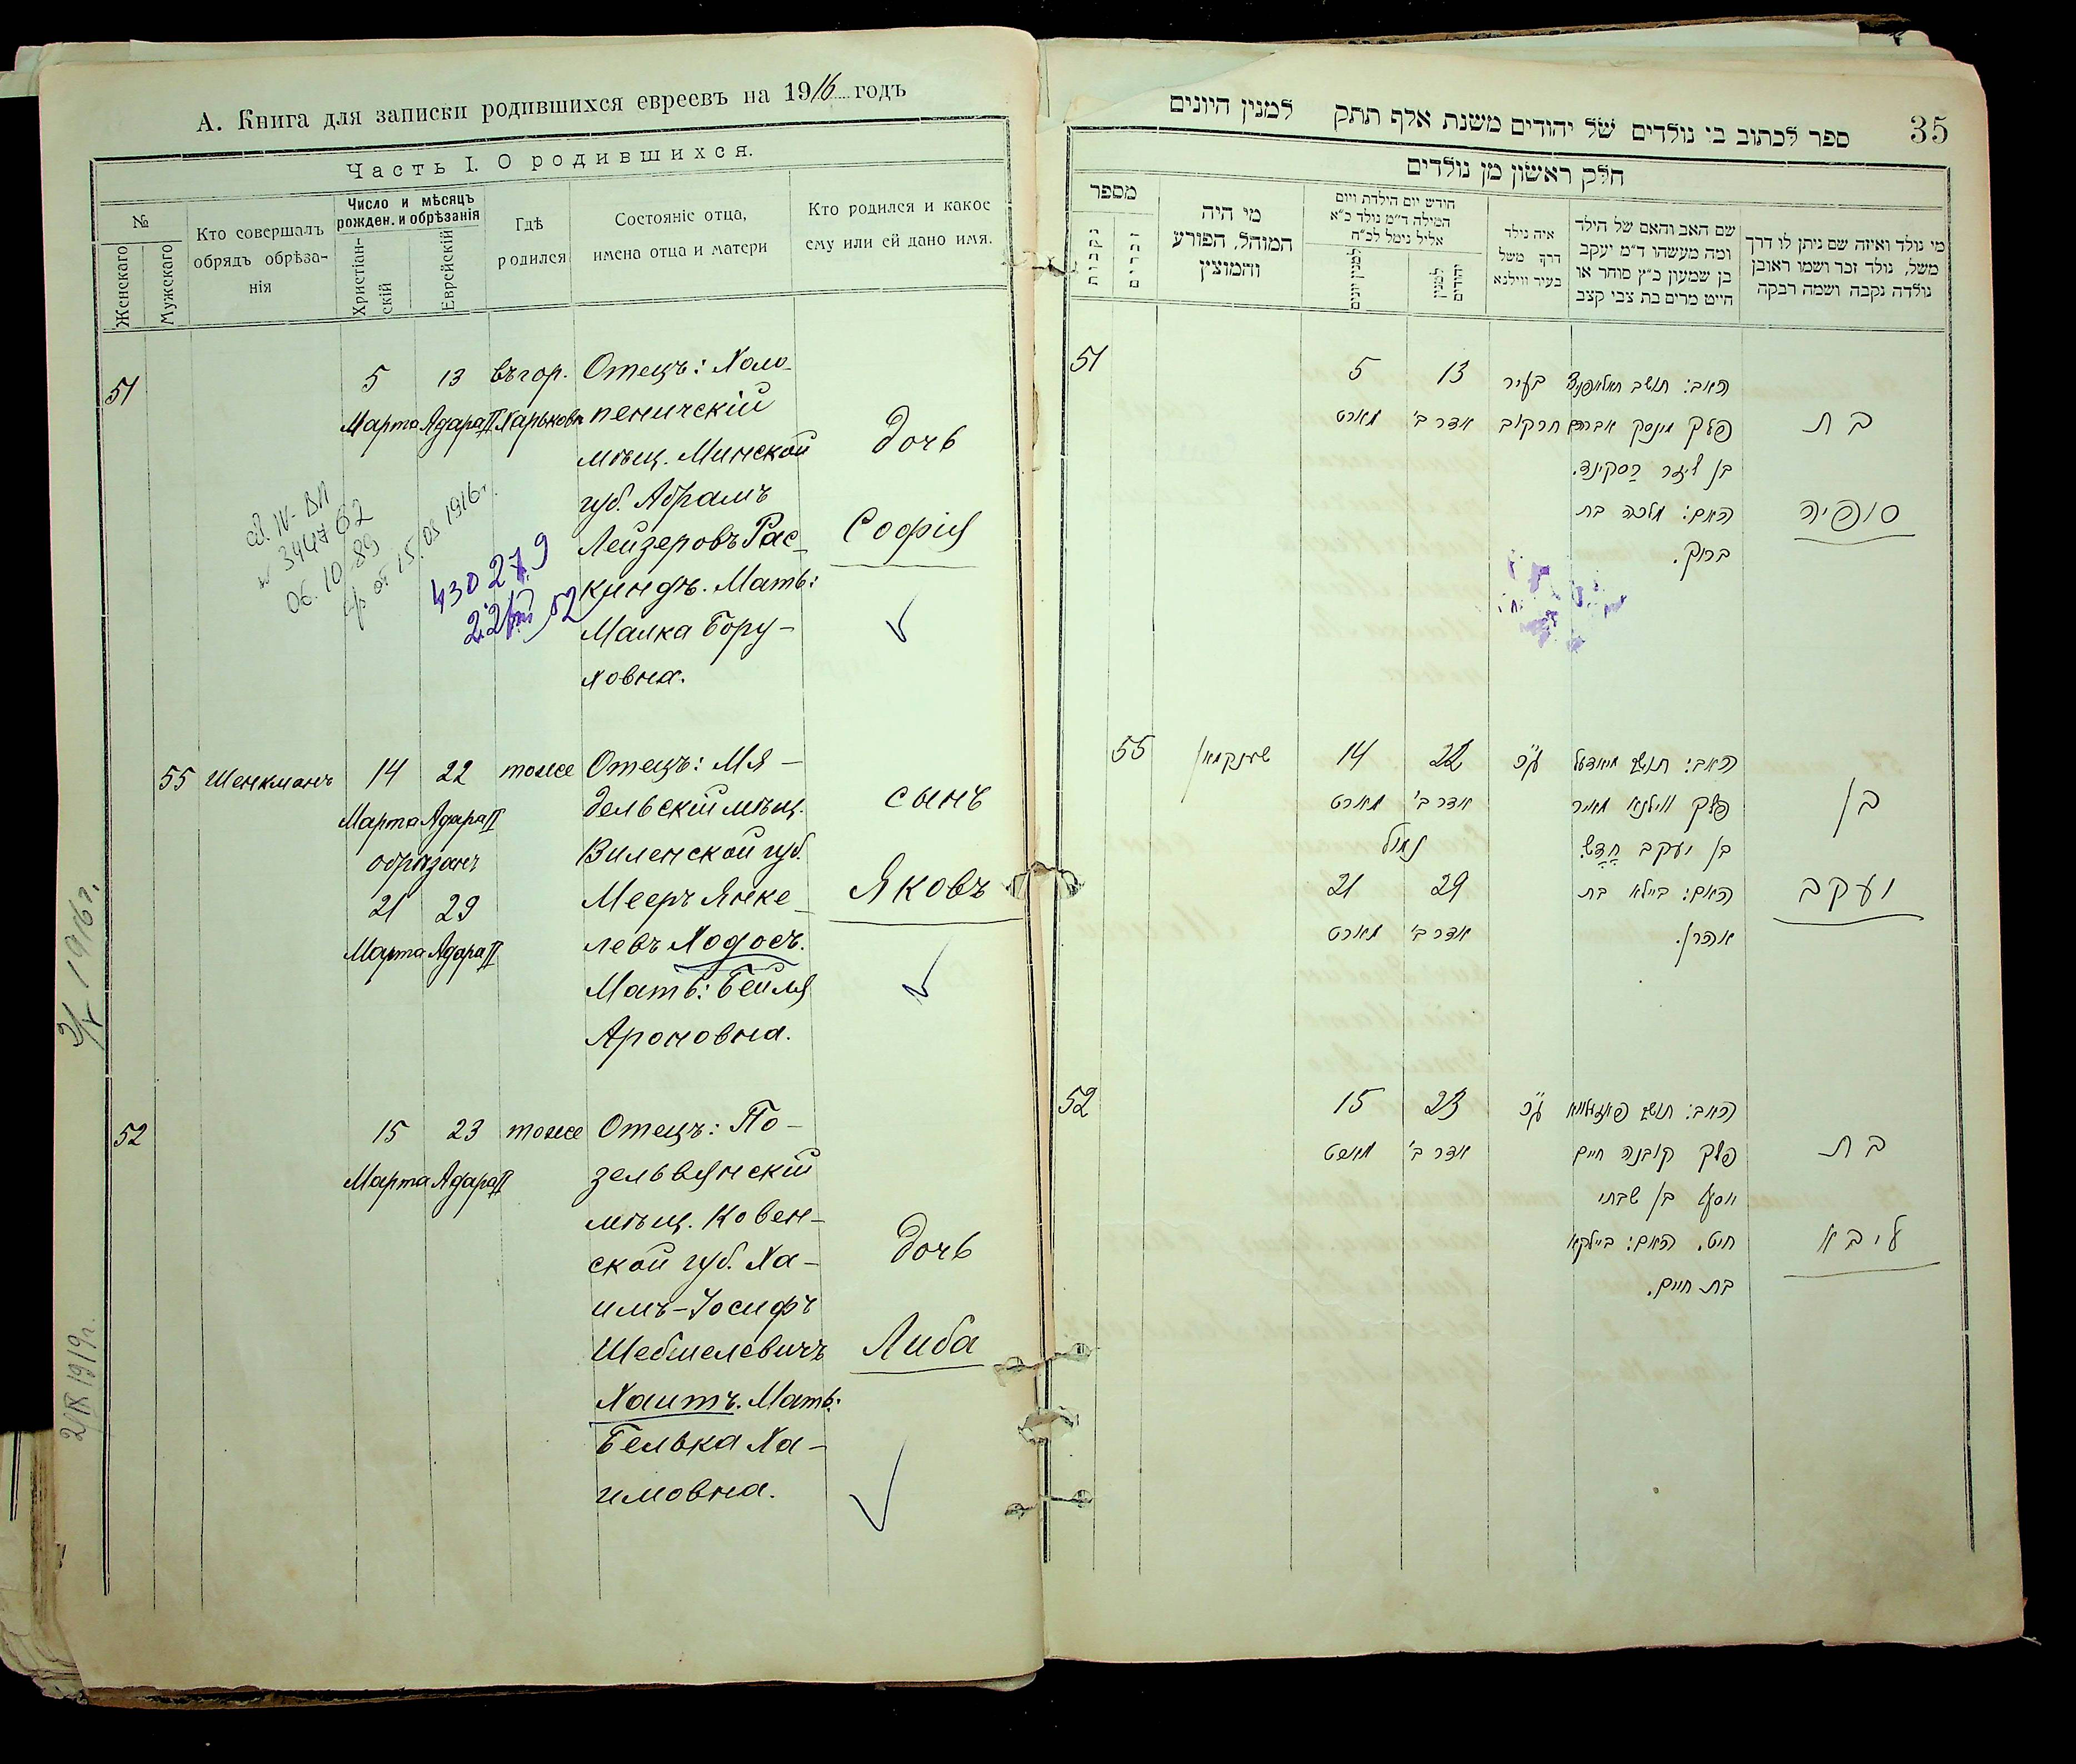 А. Книга для записки родившихся евреевъ на 1916 годъ
Часть I. О родившихся.
№
Женскаго
Мужескаго
Кто совершалъ
обрядъ обрѣза-
нія
Число и мѣсяцъ
рожден. и обрѣзанія
Христіан-
скій
Еврейскій
Гдѣ
родился
Состояніе отца,
имена отца и матери
Кто родился и какое
ему или ей дано имя.
51
5 13 въ гор. Отецъ: Холо-
Марта Адара II Харьковѣ пеничскій
мѣщ. Минской
губ. Абрамъ
Лейзеровъ Рас-
киндъ. Мать:
Малка Бору-
ховна.
дочь
Софія
430279
55 Шенкманъ 14 22 тоже Отецъ: Мя-
Марта Адара II дельскій мѣщ.
обрѣзанъ Виленской губ.
21 29 Мееръ Янке-
Марта Адара II левъ Ходосъ.
Мать: Бейля
Ароновна.
сынъ
Яковъ
52 15 23 тоже Отецъ: По-
Марта Адара II зельвянскій
мѣщ. Ковен-
ской губ. Ха-
имъ-Іосифъ
Шебшелевичъ
Хаитъ. Мать:
Белька Ха-
имовна.
дочь
Либа
1916 г.
2/IX 1919 г.
35
ספר לכתוב בו נולדים של יהודים משנת אלף תתק למנין היונים
חלק ראשון מן נולדים
מספר
נקבות
זכרים
מי היה
המוהל, הפורע
והמוצץ
חודש יום הילדת ויום
המילה ד״מ נולד כ״א
אליל נימל לכ״ח
למנין יונים
למנין
יהודים
איה נולד
דרך משל
בעיר ווילנא
שם האב והאם של הילד
ומה מעשהו ד״מ יעקב
בן שמעון כ״ץ סוחר או
חייט מרים בת צבי קצב
מי נולד ואיזה שם ניתן לו דרך
משל, נולד זכר ושמו ראובן
נולדה נקבה ושמה רבקה
51
5 13 בעיר האב: תושב
מארט אדר ב׳ חרקוב פלך מינסק אברהם
בן ליזר רסקינד.
האם: מלכה בת
ברוך.
בת
סופיה
55 שענקמאן 14 22
מארט אדר ב׳ פלך ווילנא מאיר
נימול בן יעקב חדש.
21 29 האם: ביילא בת
מארט אדר ב׳ אהרן.
בן
יעקב
52
15 23
מארט אדר ב׳ פלך קובנה חיים
יוסף בן שבתי
חיט. האם: ביילקא
בת חיים.
בת
ליבא